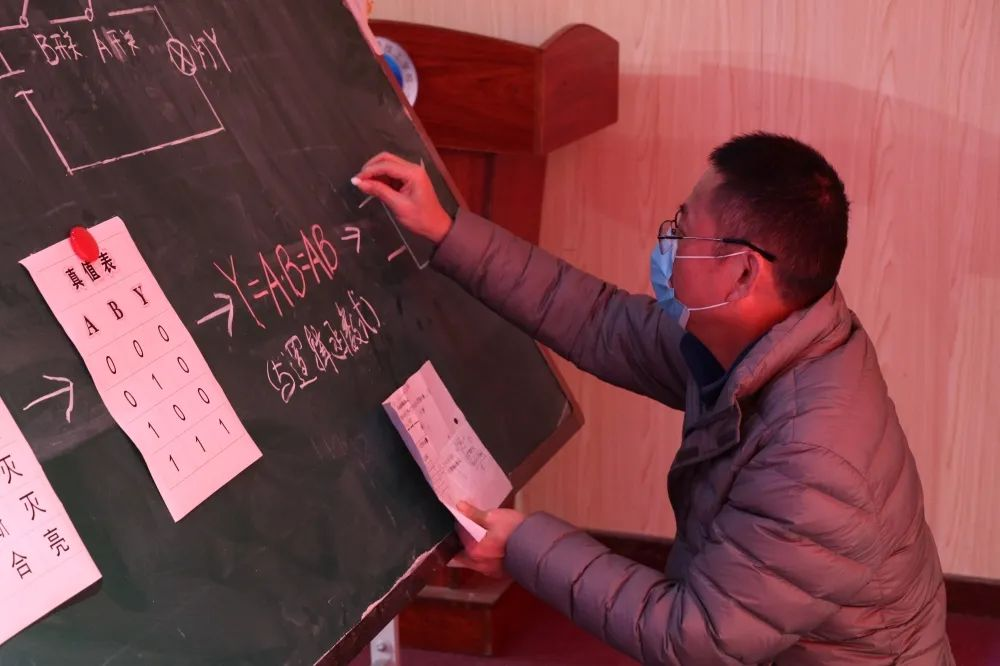 B开关 A开关 灯Y
真值表
A B Y
0 0 0
0 1 0
1 0 0
1 1 1
Y=A·B=AB
(与逻辑函数式)
灭
灭
合 亮